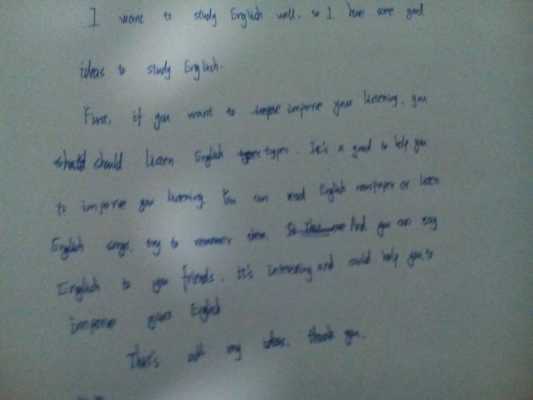 I want to study English well. so I have some good
ideas to study English.
First, if you want to improve your listening, you
should should listen English types. It's a good to help you
to improve you listening. You can read English newspaper or listen
English songs, try to remember them. And you can say
English to you friends. It's interesting and could help you to
improve your English
That's all my ideas. thank you.